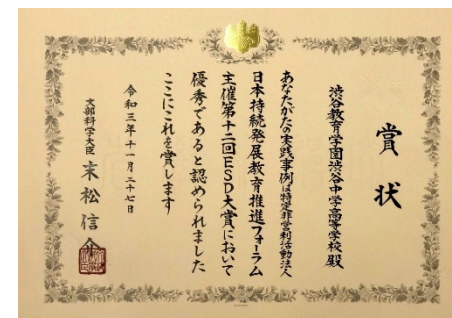 賞状
渋谷教育学園渋谷中学高等学校殿
あなたがたの実践事例は特定非営利活動法人
日本持続発展教育推進フォーラム
主催第十二回ESD大賞において
優秀であると認められました
ここにこれを賞します
令和三年十一月二十七日
文部科学大臣 末松信介